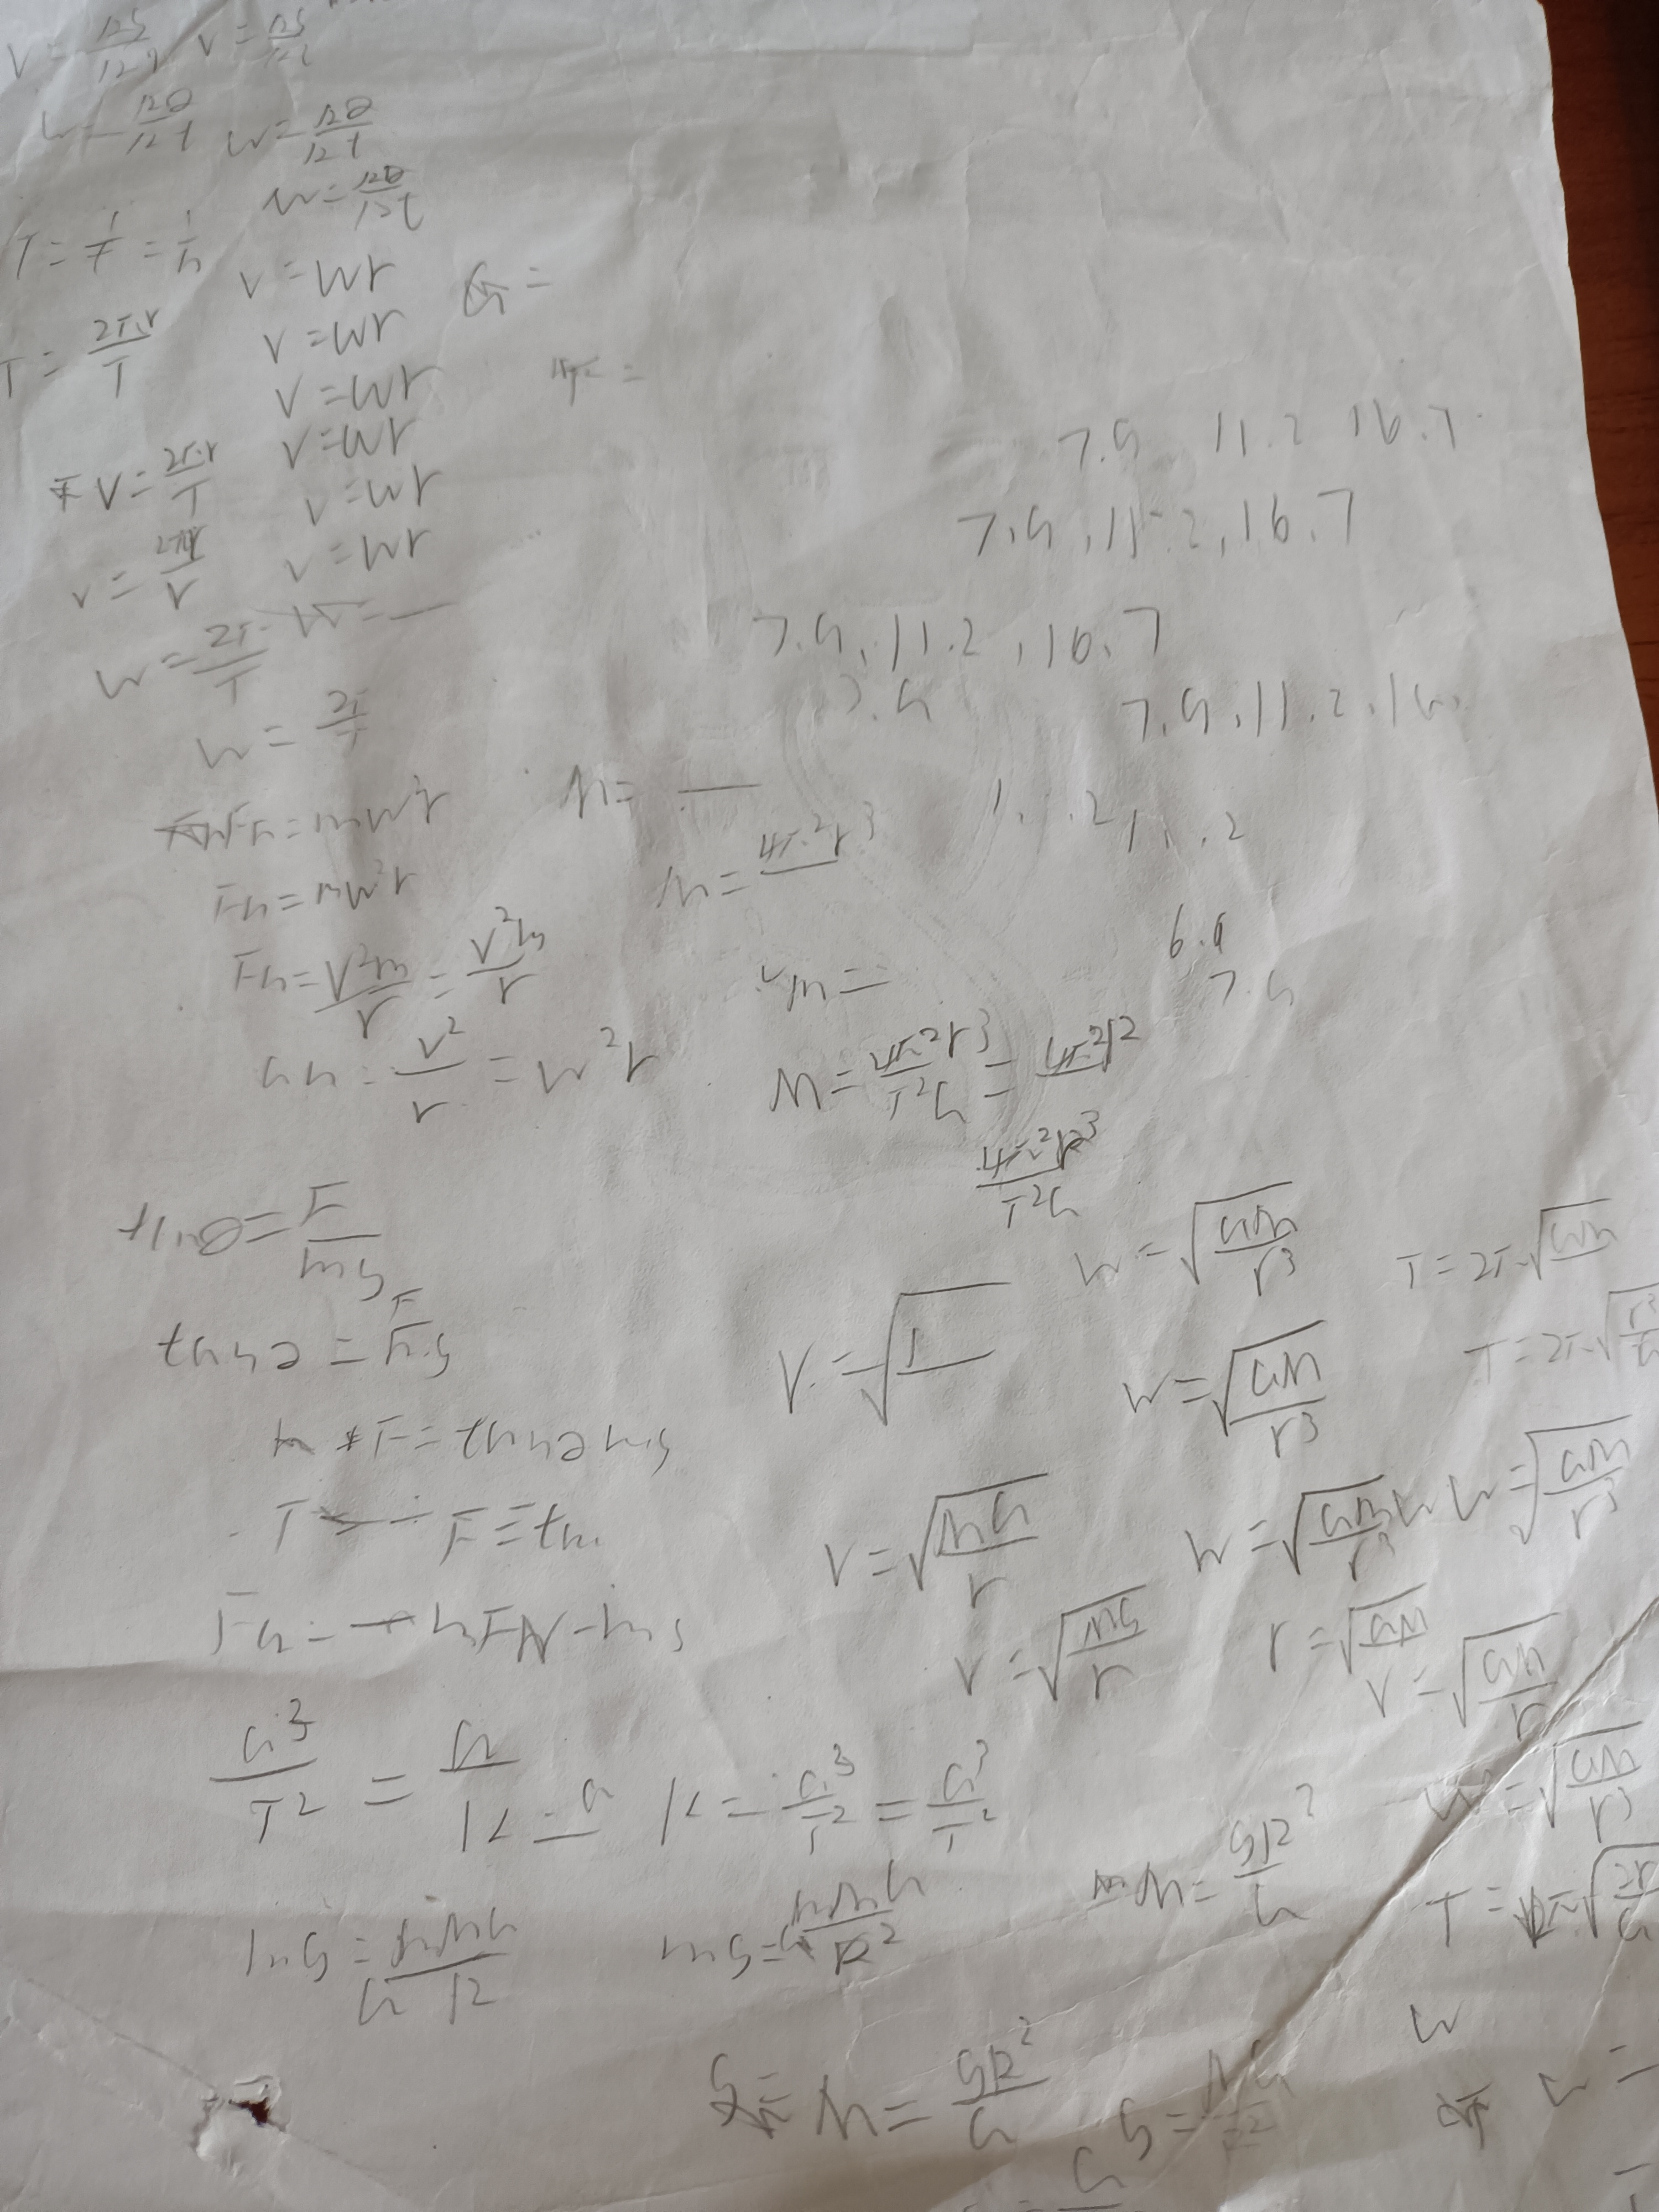 V = Δs/Δt V = Δs/Δt
w = Δθ/Δt w = Δθ/Δt
w = Δθ/Δt
T = 1/f = 1/n
v = wr G =
T = 2πr/T
v = wr
v = wr
v = wr
V = 2πr/T
v = wr
v = 2πr/r
v = wr
w = 2π/T
w = 2π/T
7.9 11.2 16.7
7.9, 11.2, 16.7
7.9, 11.2, 16.7
7.9
7.9, 11.2, 1
Fn = mw²r
M =
11.2
Fn = mw²r
M = 4π²r³
6.9
7.9
Fn = V²m/r = V²m/r
m =
an = v²/r = w²r
M = 4π²r³/T²G = 4π²
4π²r³/T²G
tanθ = F/mg
w = √(GM/r³) T = 2π√GM
tanθ = F/mg
V = √
w = √(GM/r³)
F = tanθmg
F = tan
V = √(MG/r)
w = √(GM/r³) w = √(GM/r³)
FN - mg
v = √(MG/r)
r = √GM
v = √(GM/r)
a³/T² = a
k = a
k = a³/T² = a³/T²
w = √(GM/r³)
mg = mMG/R
mg = mMG/R²
M = gR²/G
w
M = gR²/G
g = MG
w =